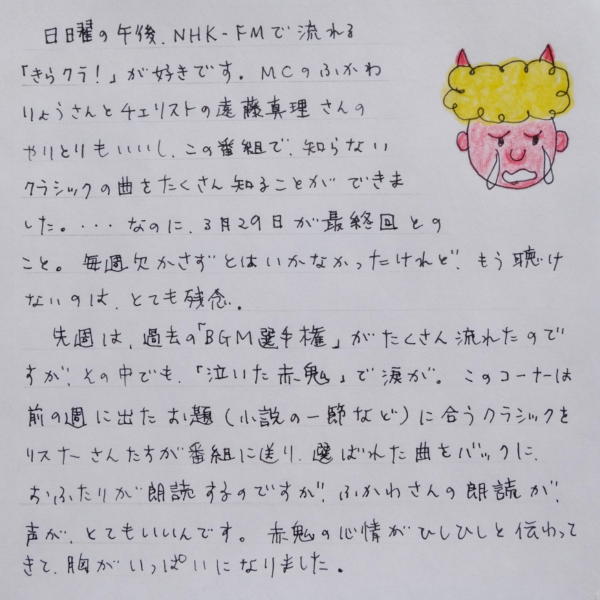 日曜の午後、NHK-FMで流れる
「きらクラ!」が好きです。MCのふかわ
りょうさんとチェリストの遠藤真理さんの
やりとりもいいし、この番組で、知らない
クラシックの曲をたくさん知ることができま
した。・・・なのに、3月29日が最終回との
こと。毎週欠かさずとはいかなかったけれど、もう聴け
ないのは、とても残念。
先週は、過去の「BGM選手権」がたくさん流れたので
すが、その中でも、「泣いた赤鬼」で涙が。このコーナーは
前の週に出たお題(小説の一節など)に合うクラシックを
リスナーさんたちが番組に送り、選ばれた曲をバックに、
おふたりが朗読するのですが、ふかわさんの朗読が、
声が、とてもいいんです。赤鬼の心情がひしひしと伝わって
きて、胸がいっぱいになりました。